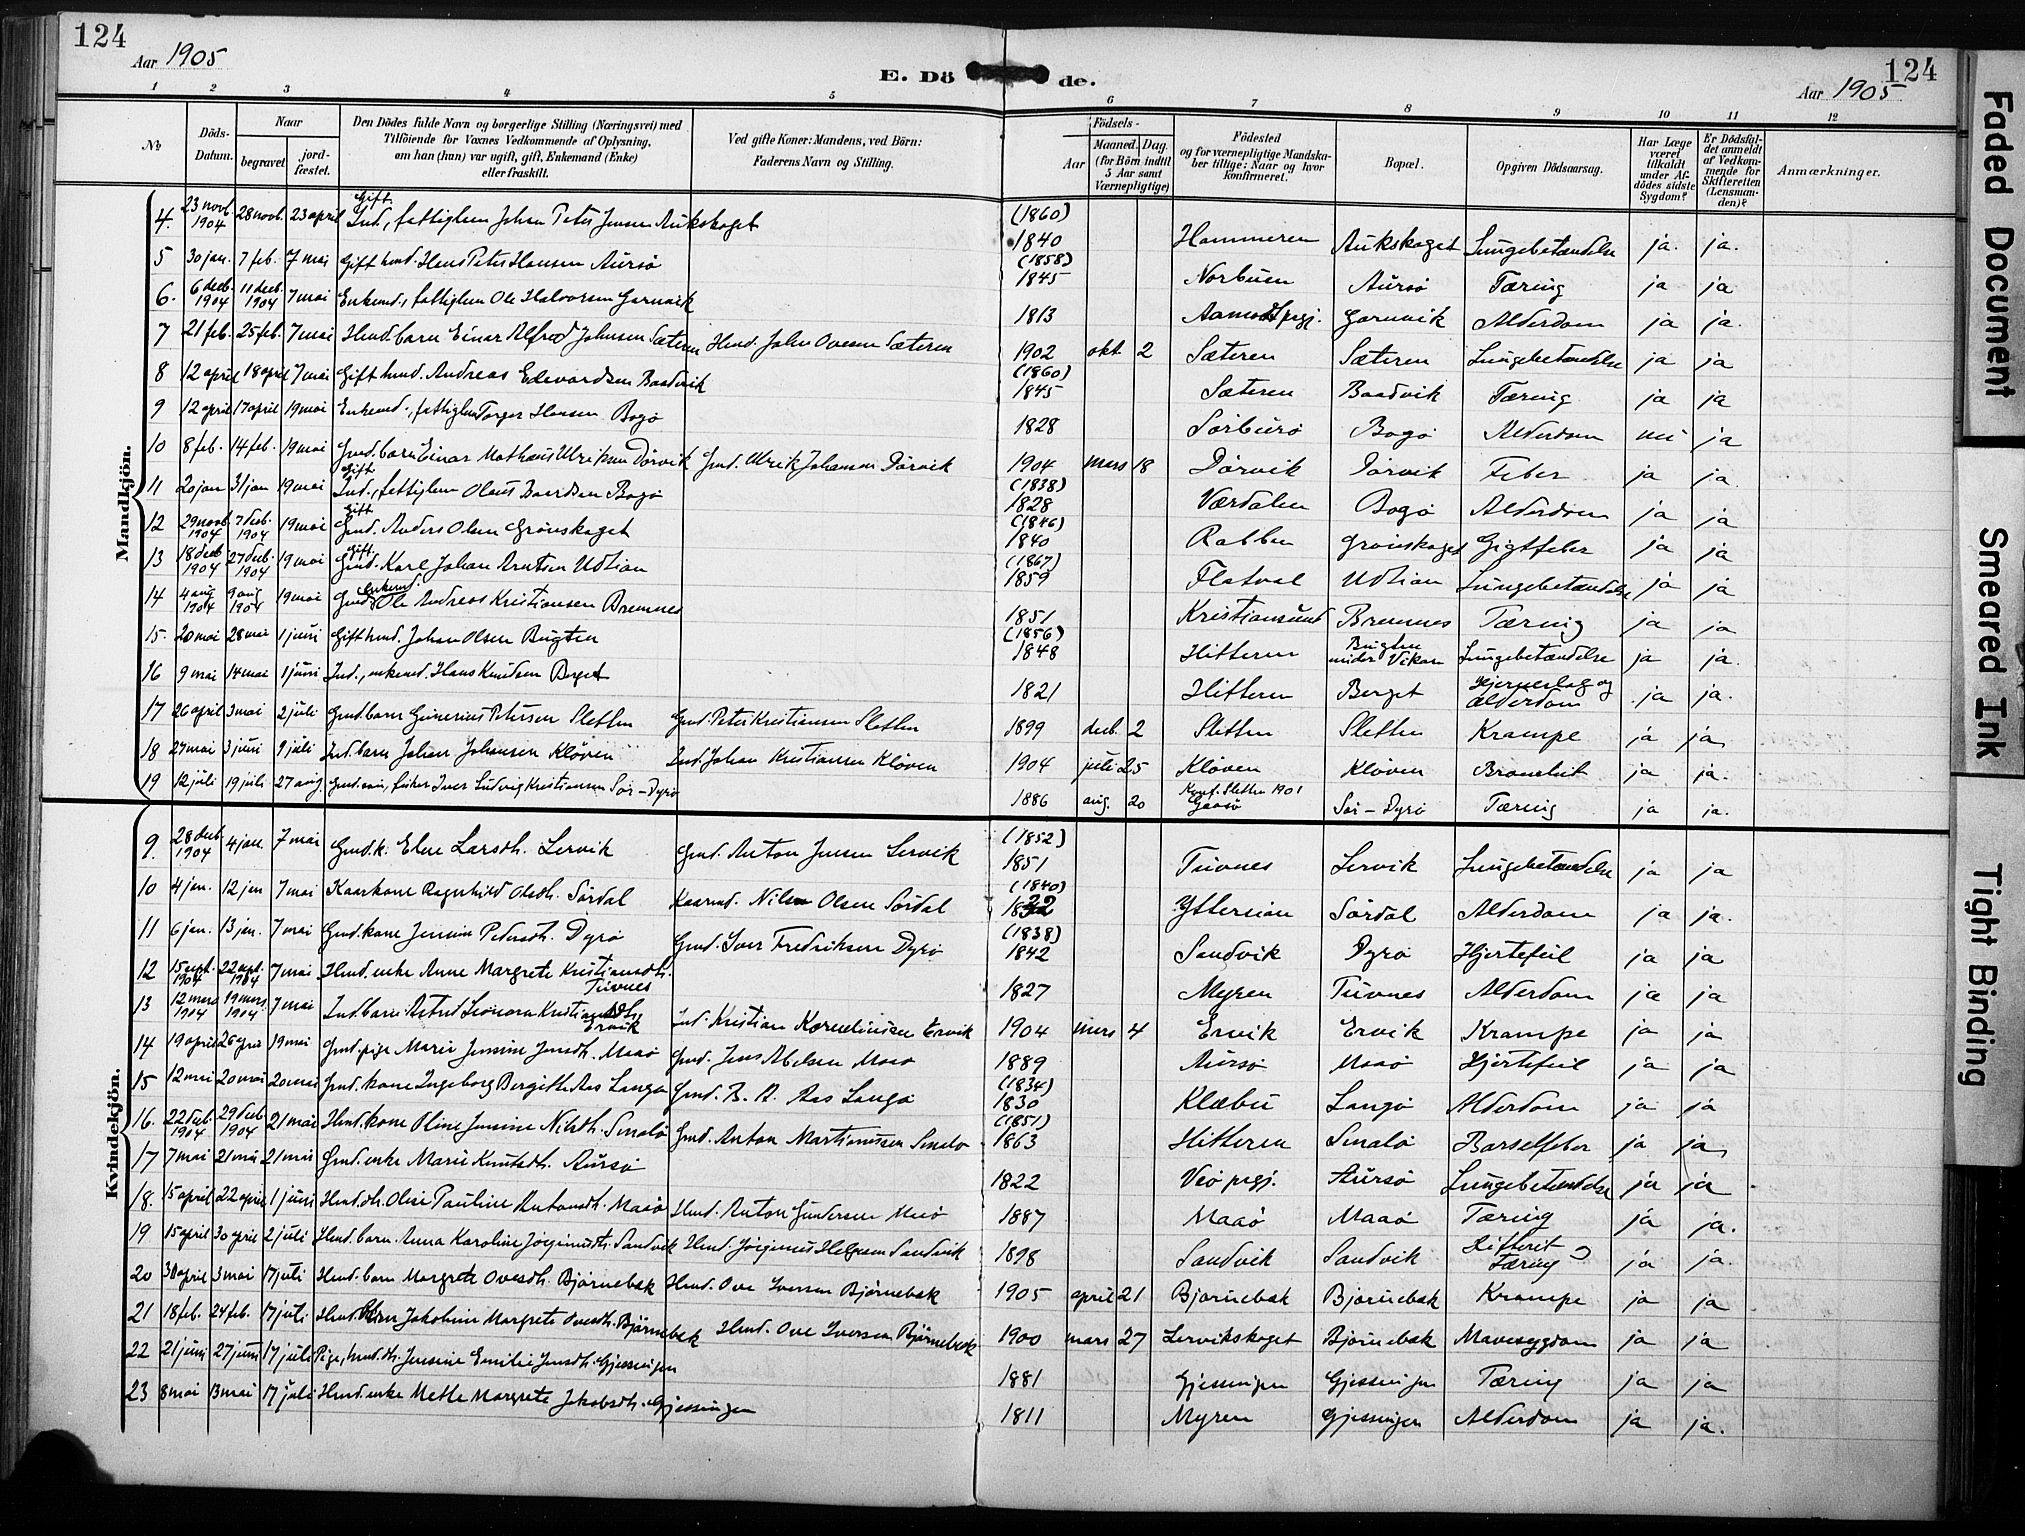 124
Aar 1905
E. Döde.
Aar 1905
124
1 2 3 4 5 6 7 8 9 10 11 12
No
Döds-Datum.
Naar
begravet
jordfæstet.
Den Dödes fulde Navn og borgerlige Stilling (Næringsvei) med Tilföiende for Voxnes Vedkommende af Oplysning, om han (hun) var ugift, gift, Enkemand (Enke) eller fraskilt.
Ved gifte Koner: Mandens, ved Börn: Faderens Navn og Stilling.
Födsels-
Aar
Maaned.
Dag.
(for Börn indtil 5 Aar samt Værnepligtige)
Födested og for værnepligtige Mandskaber tillige: Naar og hvor konfirmeret.
Bopæl.
Opgiven Dödsaarsag.
Har Læge været tilkaldt under Afdödes sidste Sygdom?
Er Dödsfaldet anmeldt af Vedkommende for Skifteretten (Lensmanden)?
Anmærkninger.
Mandkjön.
4. 23 novb. 1904 28 novb. 23 april Gift Ind., fattiglem Johan Peter Jensen Aukskaget (1860) 1840 Hammeren Aukskaget Lungebetændelse ja. ja.
5 30 jan. 7 feb. 7 mai Gift hmd. Hans Peter Hansen Aursø (1858) 1845 Norbuen Aursø Tæring ja ja
6. 6 decb. 1904 11 decb. 1904 7 mai Enkemd., fattiglem Ole Halvorsen Garnvik 1813 Aamodt prgj. Garnvik Alderdom ja ja.
7 21 feb. 25 feb. 7 mai Hmd. barn Einar Alfred Johnsen Sæteren Hmd. John Ovesen Sæteren 1902 okt. 2 Sæteren Sæteren Lungebetændelse ja ja
8 12 april 18 april 7 mai Gift hmd. Andreas Edvardsen Baadvik (1860) 1845 Sæteren Baadvik Tæring ja ja
9 12 april 17 april 19 mai Enkemd., fattiglem Torger Hansen Bogø 1828 Sørburø Bogø Alderdom nei ja
10 8 feb. 14 feb. 19 mai Gmd. barn Einar Mathæus Ulriksen Dørvik Gmd. Ulrik Johansen Dørvik 1904 mars 18 Dørvik Dørvik Feber ja ja
11 20 jan 31 jan 19 mai Gift Ind., fattiglem Olaus Baardsen Bogø (1838) 1828 Værdalen Bogø Alderdom ja ja
12 29 novb. 1904 7 decb. 1904 19 mai Gift Gmd. Anders Olsen Grønskaget (1846) 1840 Rabben Grønskaget Gigtfeber ja ja
13 18 decb 1904 27 decb. 1904 19 mai Gift Gmd. Karl Johan Arntsen Udtian (1867) 1859 Flatval Udtian Lungebetændelse ja ja
14 4 aug 1904 9 aug 1904 19 mai Gmd. enkemd. Ole Andreas Kristiansen Bremnes 1851 Kristiansund Bremnes Tæring ja ja
15. 20 mai 28 mai 1 juni Gift hmd. Johan Olsen Bugten (1856) 1848 Hitteren Bugten under Vikan Lungebetændelse ja ja.
16 9 mai 14 mai 1 juni Ind., enkemd. Hans Knudsen Berget 1821 Hitteren Berget Hjerneslag og Alderdom ja ja.
17 26 april 3 mai 2 juli Gmd. barn Gunerius Petersen Sletten Gmd. Peter Kristiansen Sletten 1899 decb. 2 Sletten Sletten Krampe ja ja
18 27 mai 3 juni 9 juli Ind. barn Johan Johansen Kløven Ind. Johan Kristiansen Kløven 1904 juli 25 Kløven Kløven Bronchit ja ja.
19 12 juli 19 juli 27 aug. Gmd. søn, fisker Iver Ludvig Kristiansen Sør-Dyrø 1886 aug. 20 Konf. Sletten 1901 Gaasø Sør-Dyrø Tæring ja ja.
Kvindekjön.
9. 28 decb. 1904 4 jan. 7 mai Gmd. k. Elen Larsdh. Lervik Gmd. Anton Jensen Lervik (1852) 1851 Tuvnes Lervik Lungebetændelse ja ja
10 4 jan. 12 jan 7 mai Kaarkone Ragnhild Olsdh. Sørdal Kaarmd. Nils Olsen Sørdal (1840) Ytterøian Sørdal Alderdom ja ja.
11 6 jan. 13 jan. 7 mai Gmd. kone Jensine Pedersdh. Dyrø Gmd. Iver Fredriksen Dyrø (1838) 1842 Sandvik Dyrø Hjertefeil ja ja
12 15 sept. 1904 22 sept. 1904 7 mai Hmd. enke Anne Margrete Kristiansdh. Tuvnes 1827 Myren Tuvnes Alderdom ja ja
13 12 mars 1904 19 mars 1904 7 mai Ind. barn Astrid Leonora Kristiansdh. Ervik Ind. Kristian Kornelinsen Ervik 1904 mars 4 Ervik Ervik Krampe ja ja
14 19 april 26 april 19 mai Gmd. pige Marie Jensine Jensdh. Maaø Gmd. Jens Abelsen Maaø 1889 Aursø Maaø Hjertefeil ja ja
15 12 mai 20 mai 20 mai Gmd. kone Ingeborg Bergitte Aas Langø Gmd. B. A. Aas Langø (1834) 1830 Klæbu Langø Alderdom ja ja
16. 22 decb. 1904 29 decb 1904 21 mai Hmd. kone Oline Jensine Nilsdh. Smalø Gmd. Anton Martinussen Smalø (1851) 1863 Hitteren Smalø Barselfeber ja ja
17 7 mai 21 mai 21 mai Gmd. enke Marie Knutsdh. Aursø 1822 Veø prgj. Aursø Lungebetændelse ja ja
18. 15 april 22 april 1 juni Hmd. dh. Olise Pauline Antonsdh. Maaø Hmd. Anton Gundersen Maaø 1887 Maaø Maaø Tæring ja ja.
19 15 april 30 april 2 juli Hmd. barn Anna Karoline Jørginusdh. Sandvik Hmd. Jørginus Helgesen Sandvik 1898 Sandvik Sandvik Difterit Tæring ja ja.
20 30 april 3 mai 17 juli Hmd. barn Margrete Ovesdh. Bjørnebak Hmd. Ove Iversen Bjørnebak 1905 april 21 Bjørnebak Bjørnebak Krampe ja ja
21 18 feb. 24 feb. 17 juli Hmd. barn Jakobine Margrete Ovesdh. Bjørnebak Hmd. Ove Iversen Bjørnebak 1900 mars 27 Lervikskaget Bjørnebak Mavesygdom ja ja
22 21 juni 27 juni 17 juli Pige, hmd. dh. Jensine Emilie Jensdh. Gjessingen 1881 Gjessingen Gjessingen Tæring ja ja
23 8 mai 13 mai 17 juli Hmd. enke Mette Margrete Jakobsdh. Gjessingen 1811 Myren Gjessingen Alderdom ja ja.
Faded Document
Smeared Ink
Tight Binding